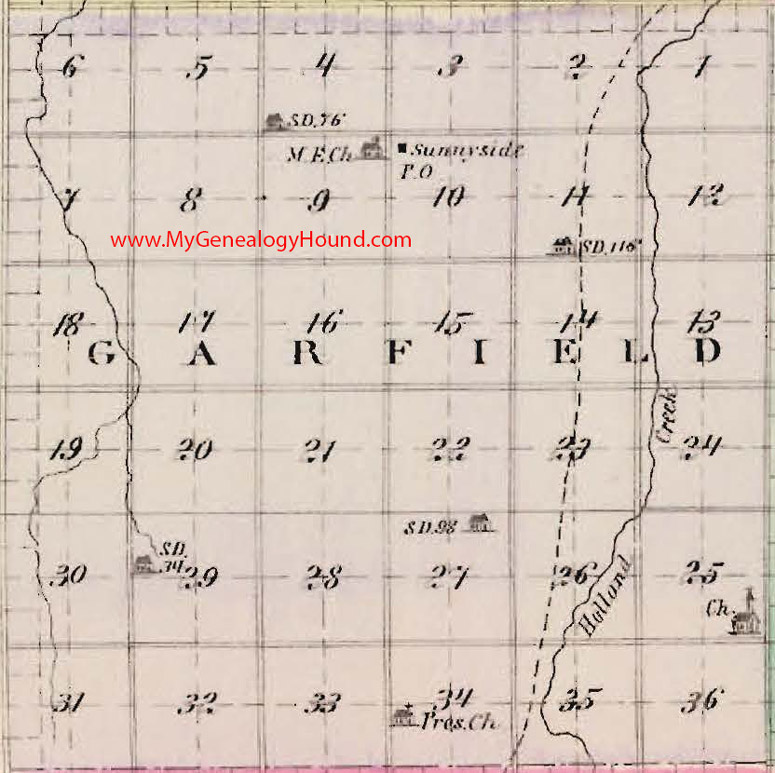 6 5 4 3 2 1
SD.76
M.E.Ch Sunnyside
P.O
7 8 9 10 11 12
www.MyGenealogyHound.com
SD.116
18 17 16 15 14 13
GARFIELD
Creek
19 20 21 22 23 24
S.D.98
SD.
34
30 29 28 27 26 25
Holland
Ch.
31 32 33 34 35 36
Pres.Ch